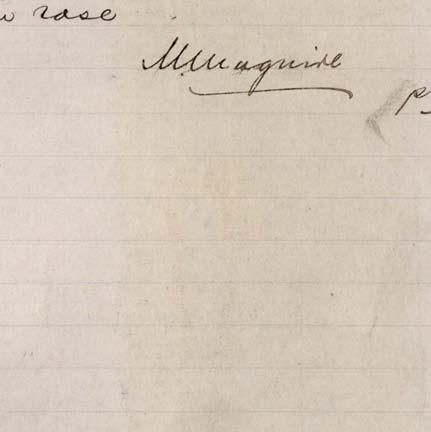 rose
M Maguire